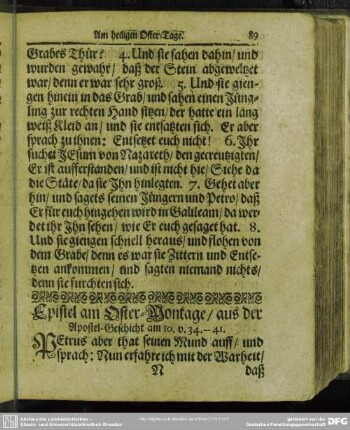 Am heiligen Oster-Tage. 89
Grabes Thür? 4. Und sie sahen dahin/ und
wurden gewahr/ daß der Stein abgeweltzet
war/ denn er war sehr groß. 5. Und sie gien-
gen hinein in das Grab/ und sahen einen Jüng-
ling zur rechten Hand sitzen/ der hatte ein lang
weiß Kleid an/ und sie entsatzten sich. Er aber
sprach zu ihnen: Entsetzet euch nicht! 6. Ihr
suchet JEsum von Nazareth/ den gecreutzigten/
Er ist aufferstanden/ und ist nicht hie/ Siehe da
die Stäte/ da sie Ihn hinlegten. 7. Gehet aber
hin/ und sagets seinen Jüngern und Petro/ daß
Er für euch hingehen wird in Galileam/ da wer-
det ihr Ihn sehen/ wie Er euch gesaget hat. 8.
Und sie giengen schnell heraus/ und flohen von
dem Grabe/ denn es war sie Zittern und Entse-
tzen ankommen/ und sagten niemand nichts/
denn sie furchten sich.
Epistel am Oster-Montage/ aus der
Apostel-Geschicht am 10. v. 34.-41.
PEtrus aber that seinen Mund auff/ und
sprach: Nun erfahre ich mit der Warheit/
N daß